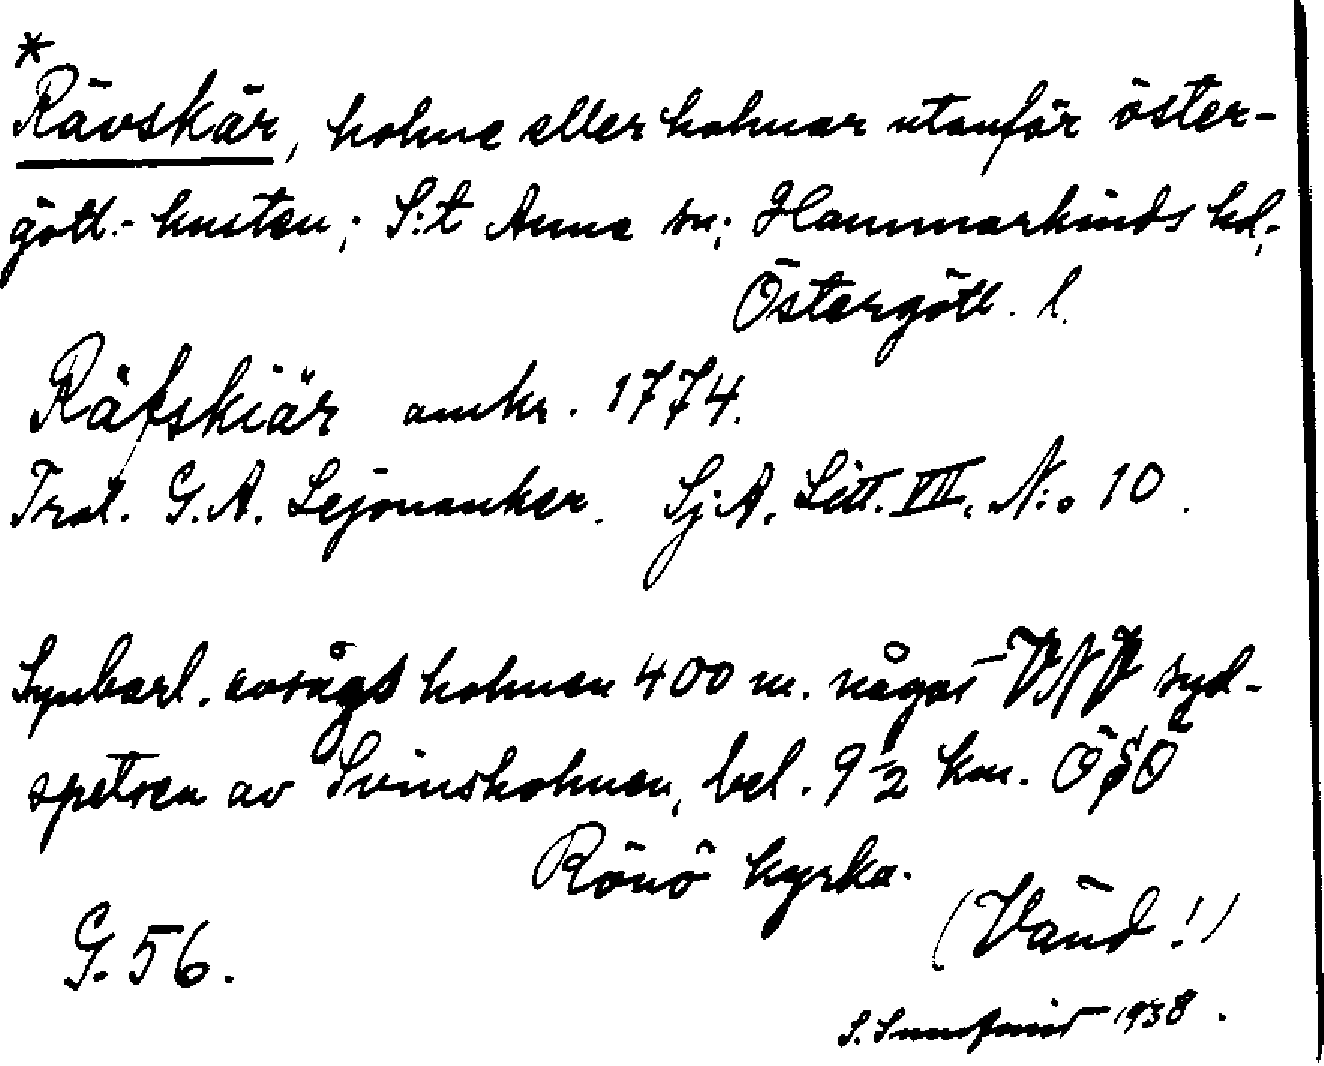 *
Rävskär, holme eller holmar utanför öster-
götl.- kusten; S:t Anna sn; Hammarkinds hd,
Östergötl. l.
Räfskiär omkr. 1774.
Trol. G.A. Lejonanker. Sj.A. Litt. VII. N:o 10.
Synbarl. avsågs holmen 400 m. någor VNV syd-
spetsen av Svinsholmen, bel. 9 1/2 km. ÖSÖ
Rönö kyrka.
(Vänd!)
G. 56.
1938.